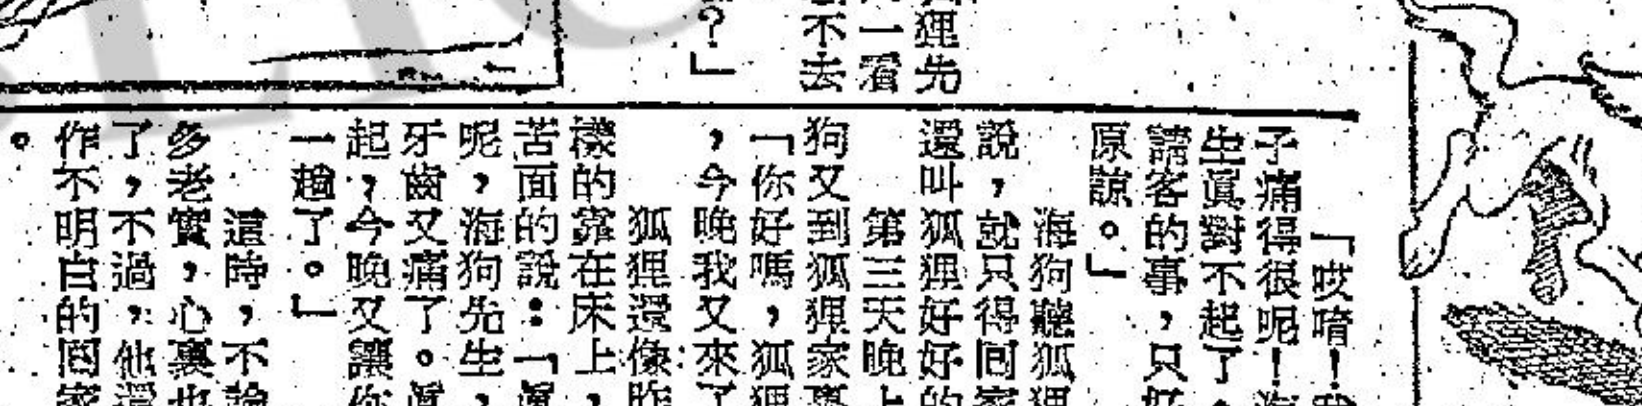 狸先
一看
不去
？」
「哎唷！我
子痛得很呢！海
生眞對不起了，
請客的事，只好
原諒。」
海狗聽狐狸
說，就只得回家
還叫狐狸好好的
第三天晚上
狗又到狐狸家裏
「你好嗎，狐狸
，今晚我又來了
狐狸還像昨
樣的靠在床上，
苦面的說：「眞
呢，海狗先生，
牙齒又痛了。眞
起，今晚又讓你
一趟了。」
這時，不論
多老實，心裏也
了，不過，他還
作不明白的回家
。